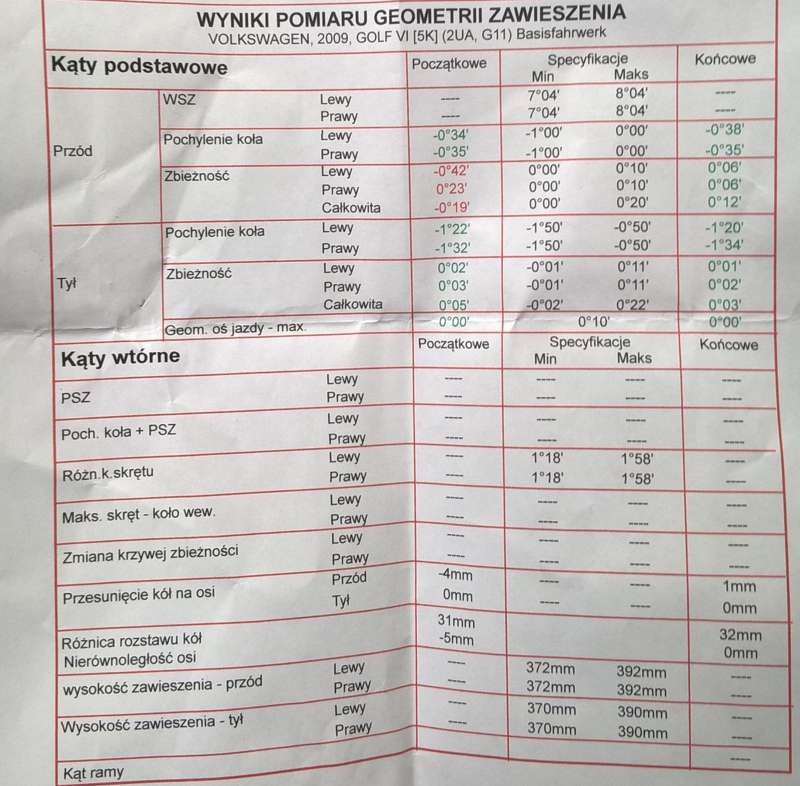 WYNIKI POMIARU GEOMETRII ZAWIESZENIA
VOLKSWAGEN, 2009, GOLF VI [5K] (2UA, G11) Basisfahrwerk
Kąty podstawowe Początkowe Specyfikacje Końcowe
Min Maks
WSZ Lewy ---- 7°04' 8°04' ----
Prawy ---- 7°04' 8°04' ----
Przód Pochylenie koła Lewy -0°34' -1°00' 0°00' -0°38'
Prawy -0°35' -1°00' 0°00' -0°35'
Zbieżność Lewy -0°42' 0°00' 0°10' 0°06'
Prawy 0°23' 0°00' 0°10' 0°06'
Całkowita -0°19' 0°00' 0°20' 0°12'
Pochylenie koła Lewy -1°22' -1°50' -0°50' -1°20'
Prawy -1°32' -1°50' -0°50' -1°34'
Tył Zbieżność Lewy 0°02' -0°01' 0°11' 0°01'
Prawy 0°03' -0°01' 0°11' 0°02'
Całkowita 0°05' -0°02' 0°22' 0°03'
Geom. oś jazdy - max. 0°00' 0°10' 0°00'
Kąty wtórne Początkowe Specyfikacje Końcowe
Min Maks
PSZ Lewy ---- ---- ---- ----
Prawy ---- ---- ---- ----
Poch. koła + PSZ Lewy ---- ---- ---- ----
Prawy ---- ---- ---- ----
Różn.k.skrętu Lewy ---- 1°18' 1°58' ----
Prawy ---- 1°18' 1°58' ----
Maks. skręt - koło wew. Lewy ---- ---- ---- ----
Prawy ---- ---- ---- ----
Zmiana krzywej zbieżności Lewy ---- ---- ---- ----
Prawy ---- ---- ---- ----
Przesunięcie kół na osi Przód -4mm ---- ---- 1mm
Tył 0mm ---- ---- 0mm
Różnica rozstawu kół 31mm 32mm
Nierównoległość osi -5mm 0mm
wysokość zawieszenia - przód Lewy ---- 372mm 392mm ----
Prawy ---- 372mm 392mm ----
Wysokość zawieszenia - tył Lewy ---- 370mm 390mm ----
Prawy ---- 370mm 390mm ----
Kąt ramy ----